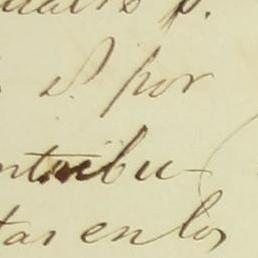 p.
S. por
ntribu-
tas en los